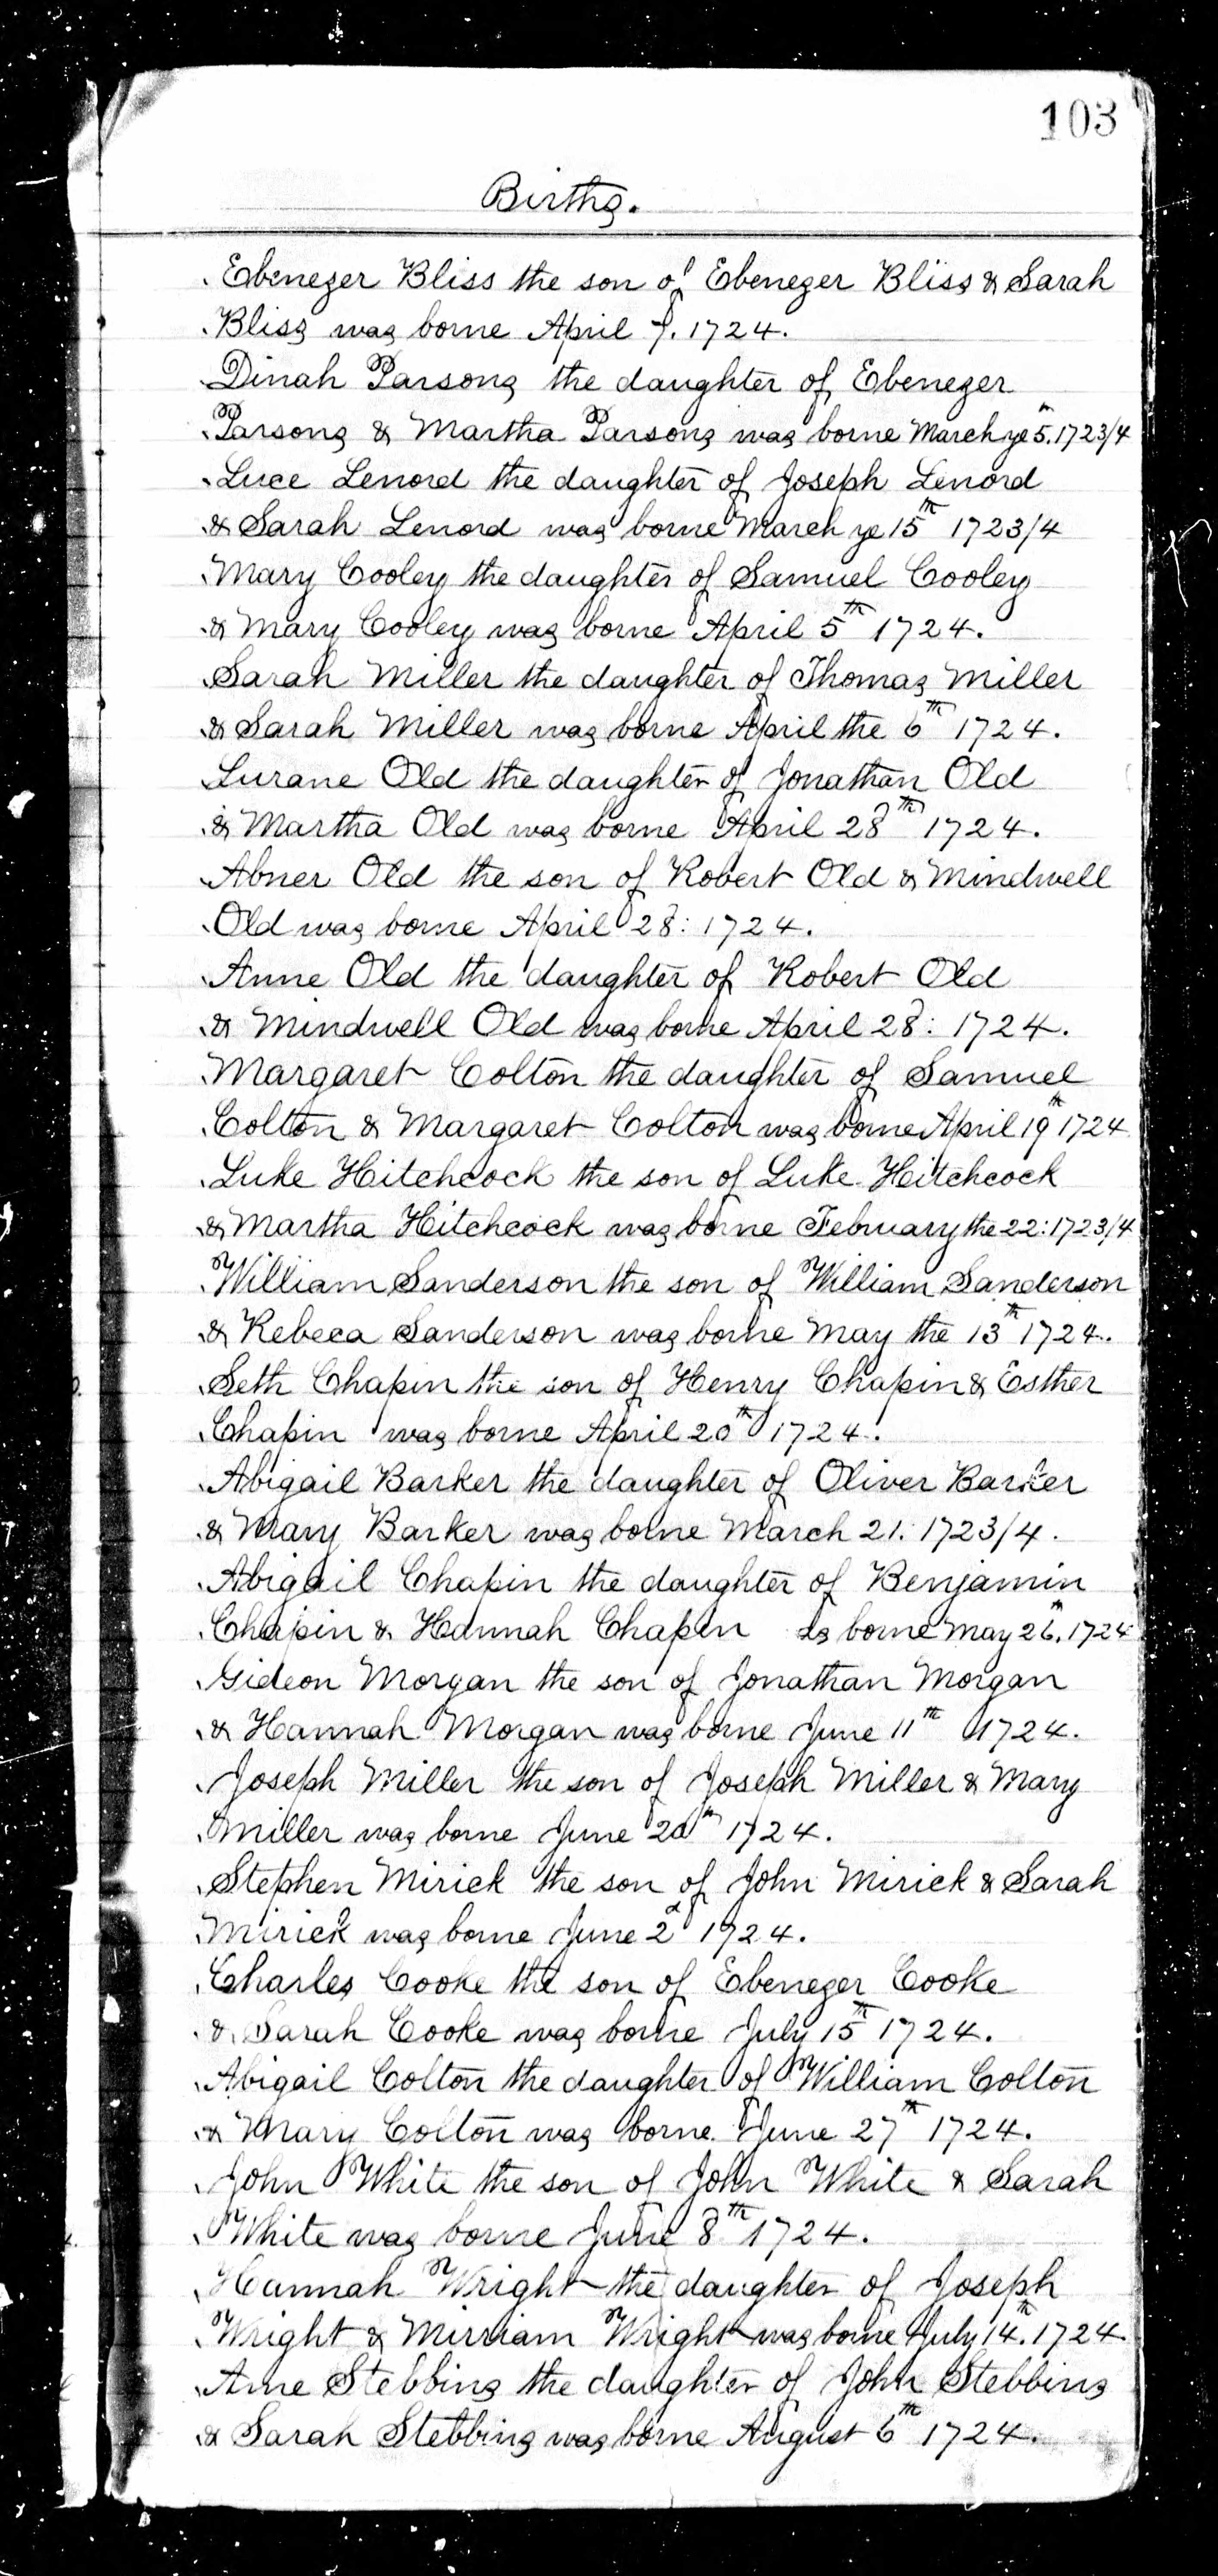 103
Births.
Ebenezer Bliss the son of Ebenezer Bliss & Sarah
Bliss was borne April 7. 1724.
Dinah Parsons the daughter of Ebenezer
Parsons & Martha Parsons was borne March ye 5th. 1723/4
Luce Lenord the daughter of Joseph Lenord
& Sarah Lenord was borne March ye 15th 1723/4
Mary Cooley the daughter of Samuel Cooley
& Mary Cooley was borne April 5th 1724.
Sarah Miller the daughter of Thomas Miller
& Sarah Miller was borne April the 6th 1724.
Lurane Old the daughter of Jonathan Old
& Martha Old was borne April 28th 1724.
Abner Old the son of Robert Old & Mindwell
Old was borne April 28: 1724.
Anne Old the daughter of Robert Old
& Mindwell Old was borne April 28: 1724.
Margaret Colton the daughter of Samuel
Colton & Margaret Colton was borne April 19th 1724
Luke Hitchcock the son of Luke Hitchcock
& Martha Hitchcock was borne February the 22: 1723/4
William Sanderson the son of William Sanderson
& Rebeca Sanderson was borne May the 13th 1724.
Seth Chapin the son of Henry Chapin & Esther
Chapin was borne April 20th 1724.
Abigail Barker the daughter of Oliver Barker
& Mary Barker was borne March 21: 1723/4.
Abigail Chapin the daughter of Benjamin
Chapin & Hannah Chapin borne May 26th. 1724
Gideon Morgan the son of Jonathan Morgan
& Hannah Morgan was borne June 11th 1724.
Joseph Miller the son of Joseph Miller & Mary
Miller was borne June 20th 1724.
Stephen Mirick the son of John Mirick & Sarah
Mirick was borne June 2d 1724.
Charles Cooke the son of Ebenezer Cooke
& Sarah Cooke was borne July 15th 1724.
Abigail Colton the daughter of William Colton
& Mary Colton was borne June 27th 1724.
John White the son of John White & Sarah
White was borne June 8th 1724.
Hannah Wright the daughter of Joseph
Wright & Mirriam Wright was borne July 14th. 1724
Anne Stebbins the daughter of John Stebbins
& Sarah Stebbins was borne August 6th 1724.